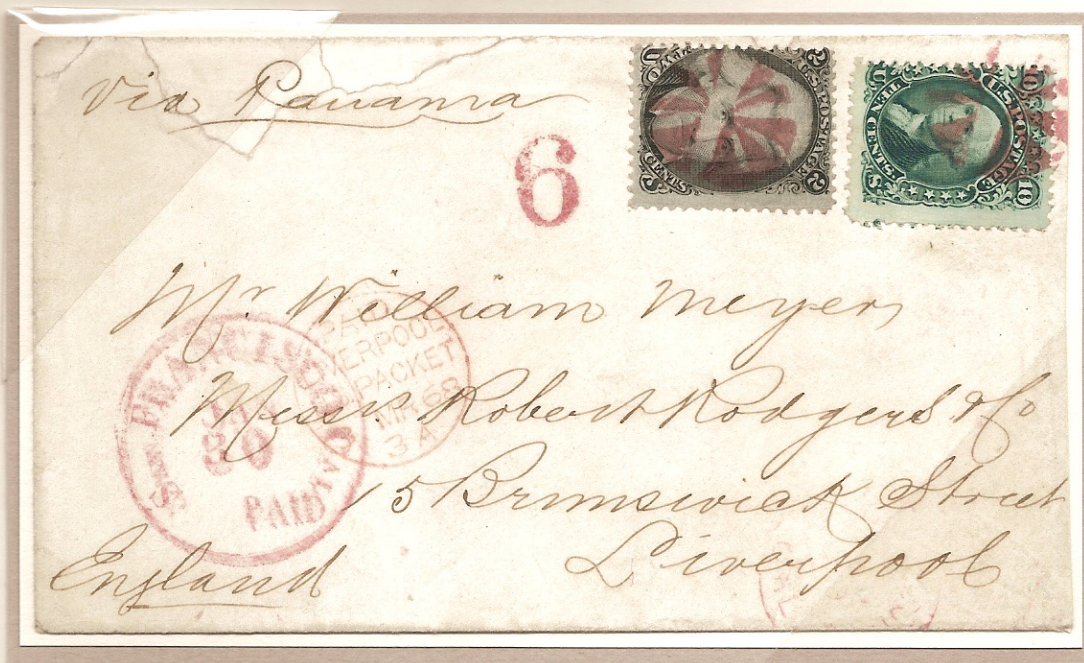 via Panama
6
U.S. POSTAGE
TWO CENTS
U.S. POSTAGE
TEN CENTS
10
10
Mr William Meyers
Messrs Robert Rodgers & Co
15 Brunswick Street
Liverpool
England
SAN FRANCISCO
30
PAID
LIVERPOOL
PACKET
MR 68
3 A